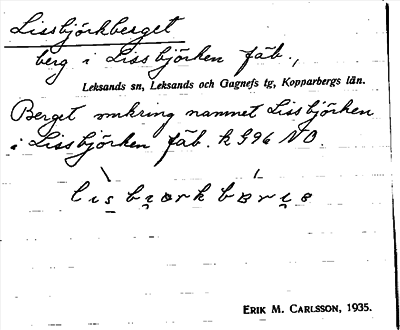 Lissbjörkberget
berg i Lissbjörken fäb.,
Leksands sn, Leksands och Gagnefs tg, Kopparbergs län.
Berget omkring namnet Lissbjörken
i Lissbjörken fäb. k 996 NO.
ERIK M. CARLSSON, 1935.